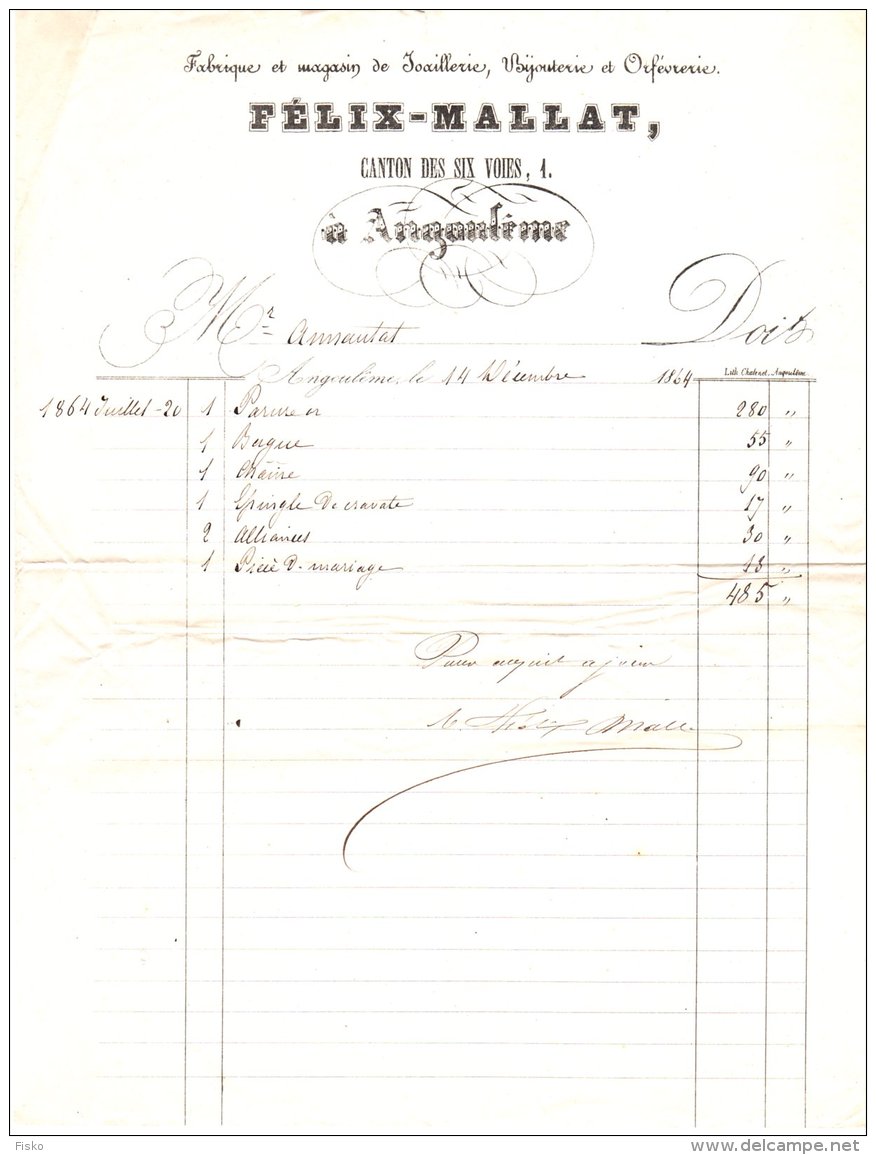 Fabrique et magasin de Joaillerie, Bijouterie et Orfévrerie.
FÉLIX-MALLAT,
CANTON DES SIX VOIES, 1.
à Angoulême
Mr Amsautat Doit
Angoulême, le 14 Décembre 1864
Lith. Chatenet, Angoulême.
1864 Juillet - 20 1 Parure or 280 "
1 Bague 55 "
1 Chaîne 90 "
1 Epingle De cravate 17 "
2 Alliances 30 "
1 Pièce D- mariage 13 "
485 "
Pour acquit a jour
Félix Mallat
Fisko
www.delcampe.net